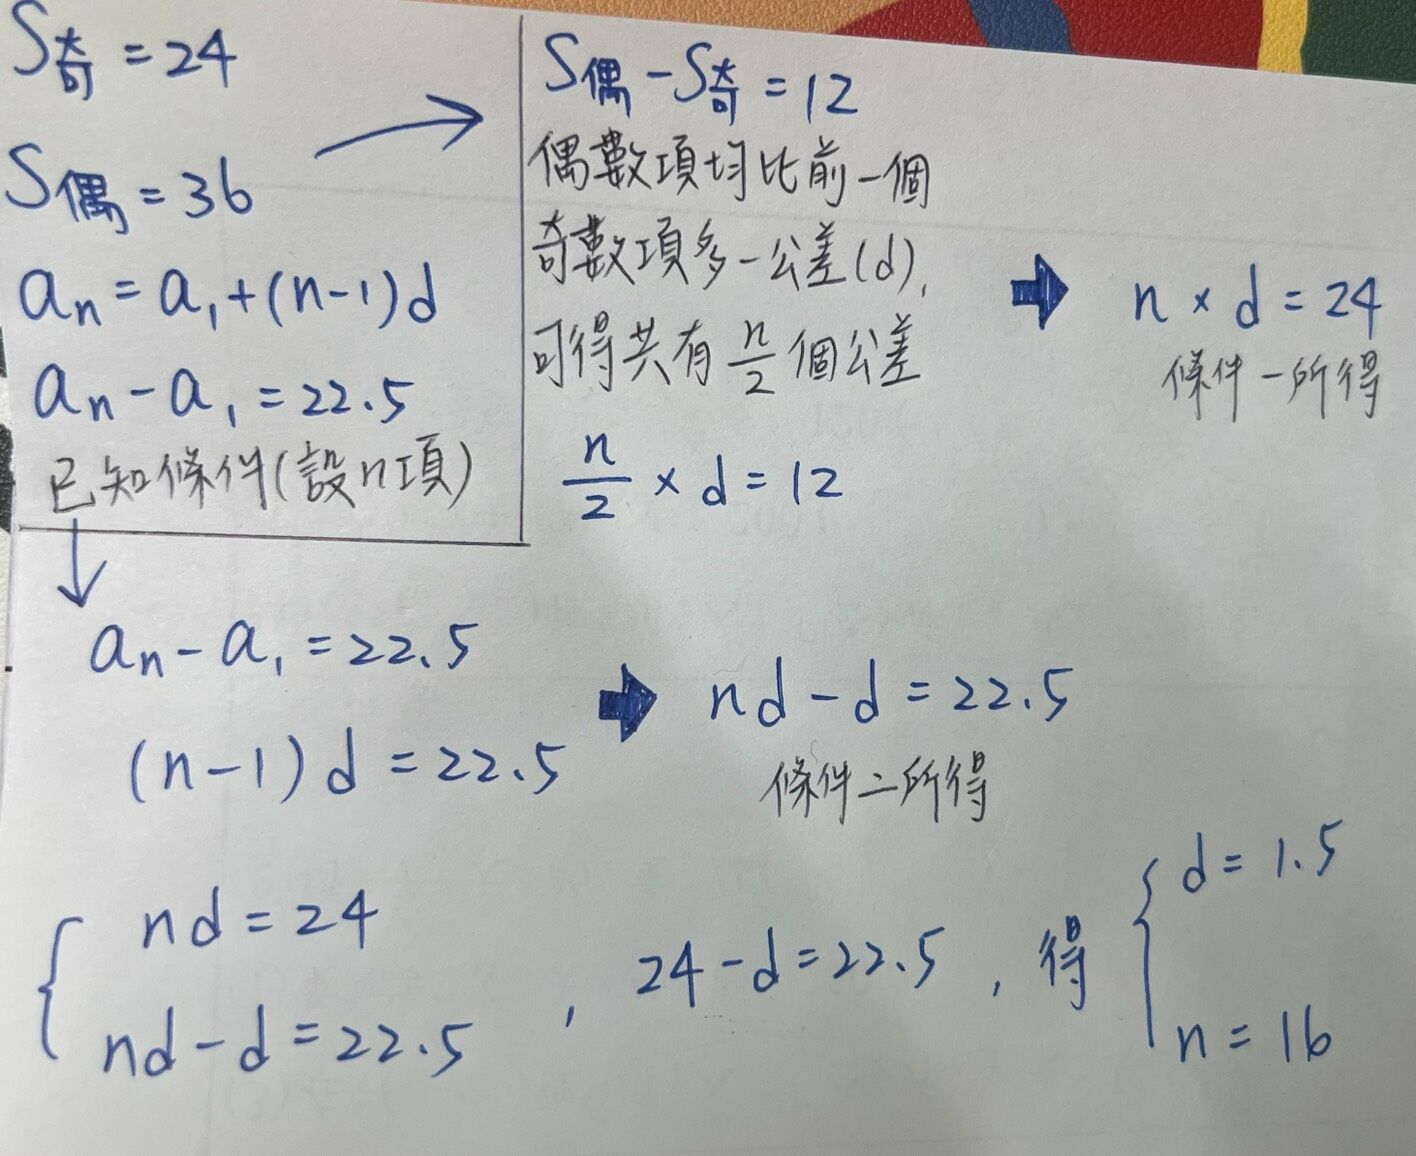 S奇 = 24
S偶 = 36
an = a1 + (n-1)d
an - a1 = 22.5
已知條件(設n項)
S偶 - S奇 = 12
偶數項均比前一個
奇數項多一公差(d),
可得共有 n/2 個公差
n/2 × d = 12
n × d = 24
條件一所得
an - a1 = 22.5
(n-1)d = 22.5
nd - d = 22.5
條件二所得
{ nd = 24
nd - d = 22.5
, 24 - d = 22.5 , 得
{ d = 1.5
n = 16